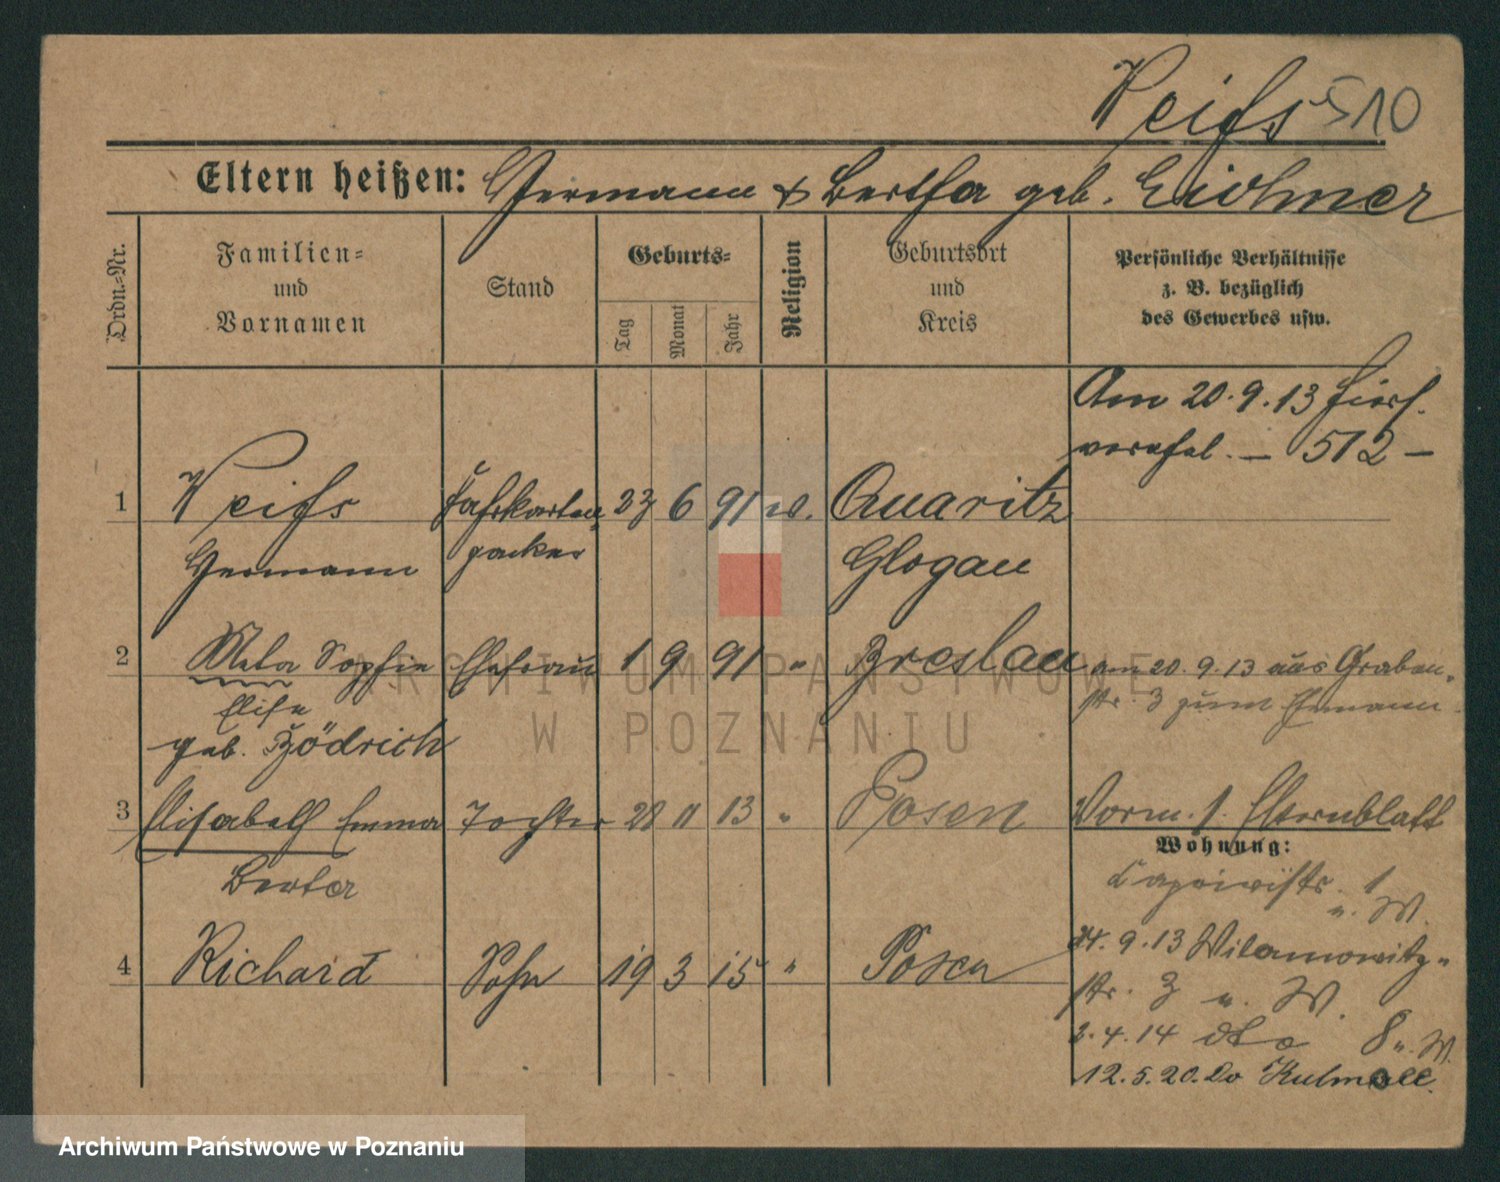 Weiss 510
Eltern heißen: Hermann & Bertha geb. Eichner
Ordn.-Nr.
Familien-
und
Vornamen
Stand
Geburts-
Tag
Monat
Jahr
Religion
Geburtsort
und
Kreis
Persönliche Verhältnisse
z. B. bezüglich
des Gewerbes usw.
Am 20.9.13 hier
verehel. — 512 —
1 Weiss Fahrkarten 23 6 91 ev. Quaritz
Hermann Glogau
2 Meta Sophie Ehefrau 1 9 91 " Breslau am 20.9.13 aus Graben-
str. 3 zum Ehemann
Elise
geb. Zödrich
3 Elisabeth Emma Tochter 28 11 13 " Posen Vorm. s. Elternblatt
Wohnung:
Berta Caprivistr. 1
n. W.
4 Richard Sohn 19 3 15 " Posen 24.9.13 Wilamowitz-
str. 3 n. W.
2.4.14 dto 8 n. W.
12.5.20. do
ARCHIWUM PAŃSTWOWE
W POZNANIU
Archiwum Państwowe w Poznaniu